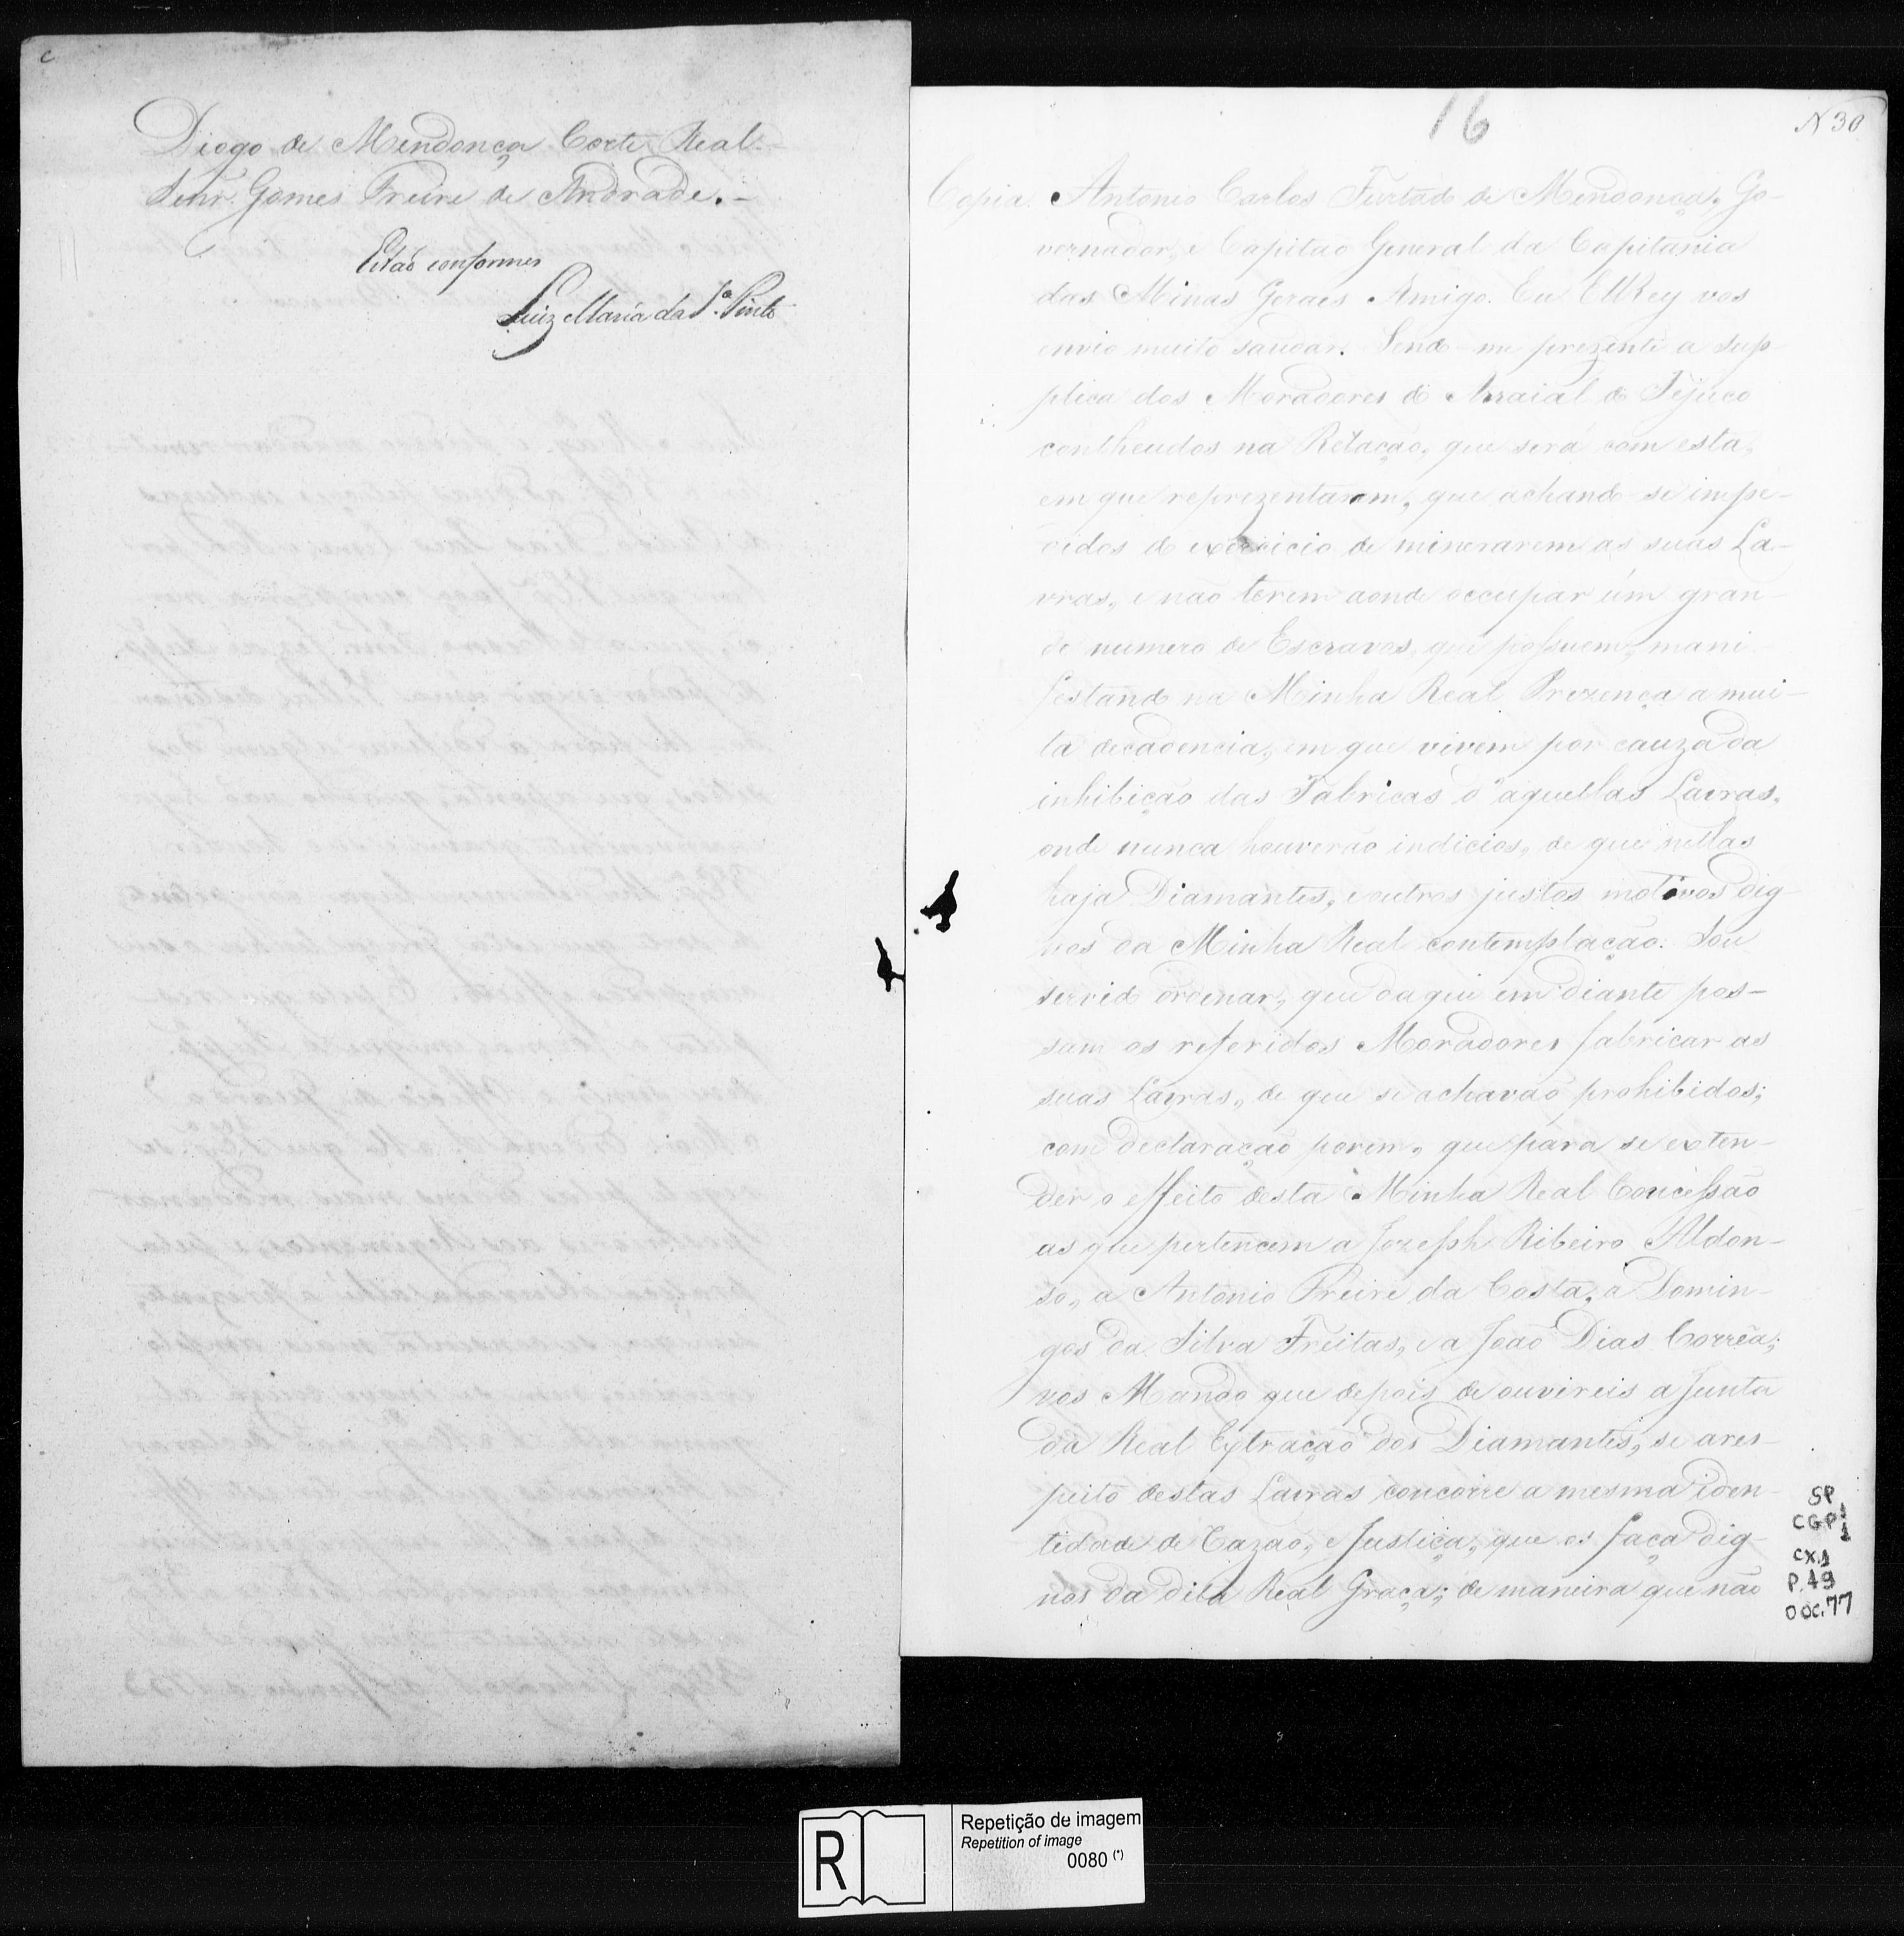 Diogo de Mendonça Corte Real.
Senr. Gomes Freire de Andrade. -
Estaõ conformes
Luiz Maria da Sa. Pinto
16
N 30
Copia. Antonio Carlos Furtado de Mendonça, Go-
vernador, e Capitaõ General da Capitania
das Minas Geraes Amigo. Eu ElRey vos
envio muito saudar. Sendo-me prezente a sup-
plica dos Moradores do Arraial do Tejuco
contheudos na Relaçaõ, que será com esta,
em que reprezentaram, que achando-se impe-
didos do exercicio de minerarem as suas La-
vras, e naõ terem aonde occupar úm gran-
de numero de Escravos, que possuem, mani-
festando na Minha Real Prezença a mui-
ta decadencia, em que vivem por cauza da
inhibiçaõ das Fabricas d'aquellas Lavras,
onde nunca houveraõ indicios, de que nellas
haja Diamantes, e outros justos motivos dig-
nos da Minha Real contemplaçaõ. Sou
servido ordenar, que daqui em diante pos-
sam os referidos Moradores fabricar as
suas Lavras, de que se achavaõ prohibidos;
com declaraçaõ porem, que para se exten-
der o effeito desta Minha Real Concessaõ
as que pertencem a Jozeph Ribeiro Aldon-
so, a Antonio Freire da Costa, a Domin-
gos da Silva Freitas, e a Joaõ Dias Corrêa;
vos Mando que depois de ouvireis a Junta
da Real Extraçaõ dos Diamantes, se a res-
peito destas Lavras concorre a mesma iden-
tidade de Razaõ, e Justiça, que os faça dig-
nos da dita Real Graça; de maneira que naõ
SP
CGP 1
1
CX.1
P.49
DOC.77
R
Repetição de imagem
Repetition of image
0080 (*)